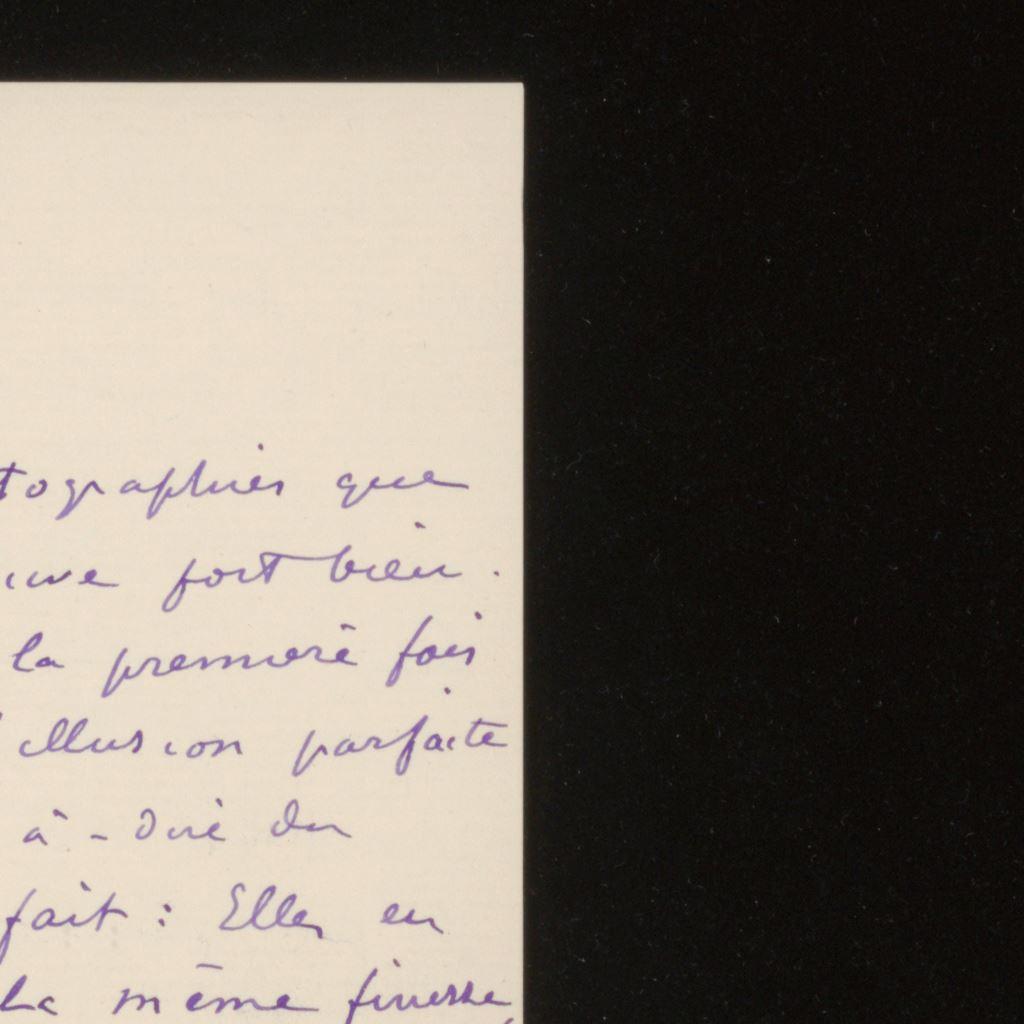 tographies que
uve fort bien.
la première fois
'illusion parfaite
à-dire du
fait : Elles en
la même finesse,